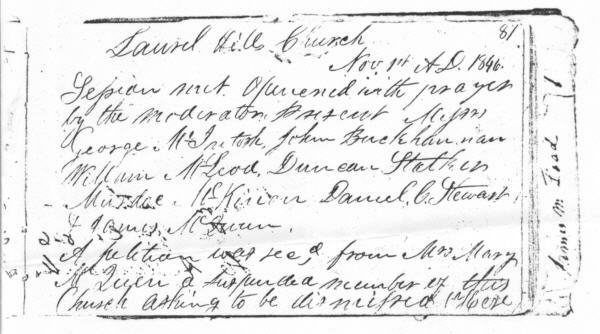 81
Laurel Hills Church
Nov 1st A.D. 1846.
Session met. Opened with prayer
by the moderator, Present Messrs
George McIntosh, John Buckhannan
William McLeod, Duncan Stalker
Murdoc McKinon Daniel C. Stewart
& James McQueen.
A petition was recd from Mrs Mary
McQueen a suspended member of this
Church asking to be dismissed